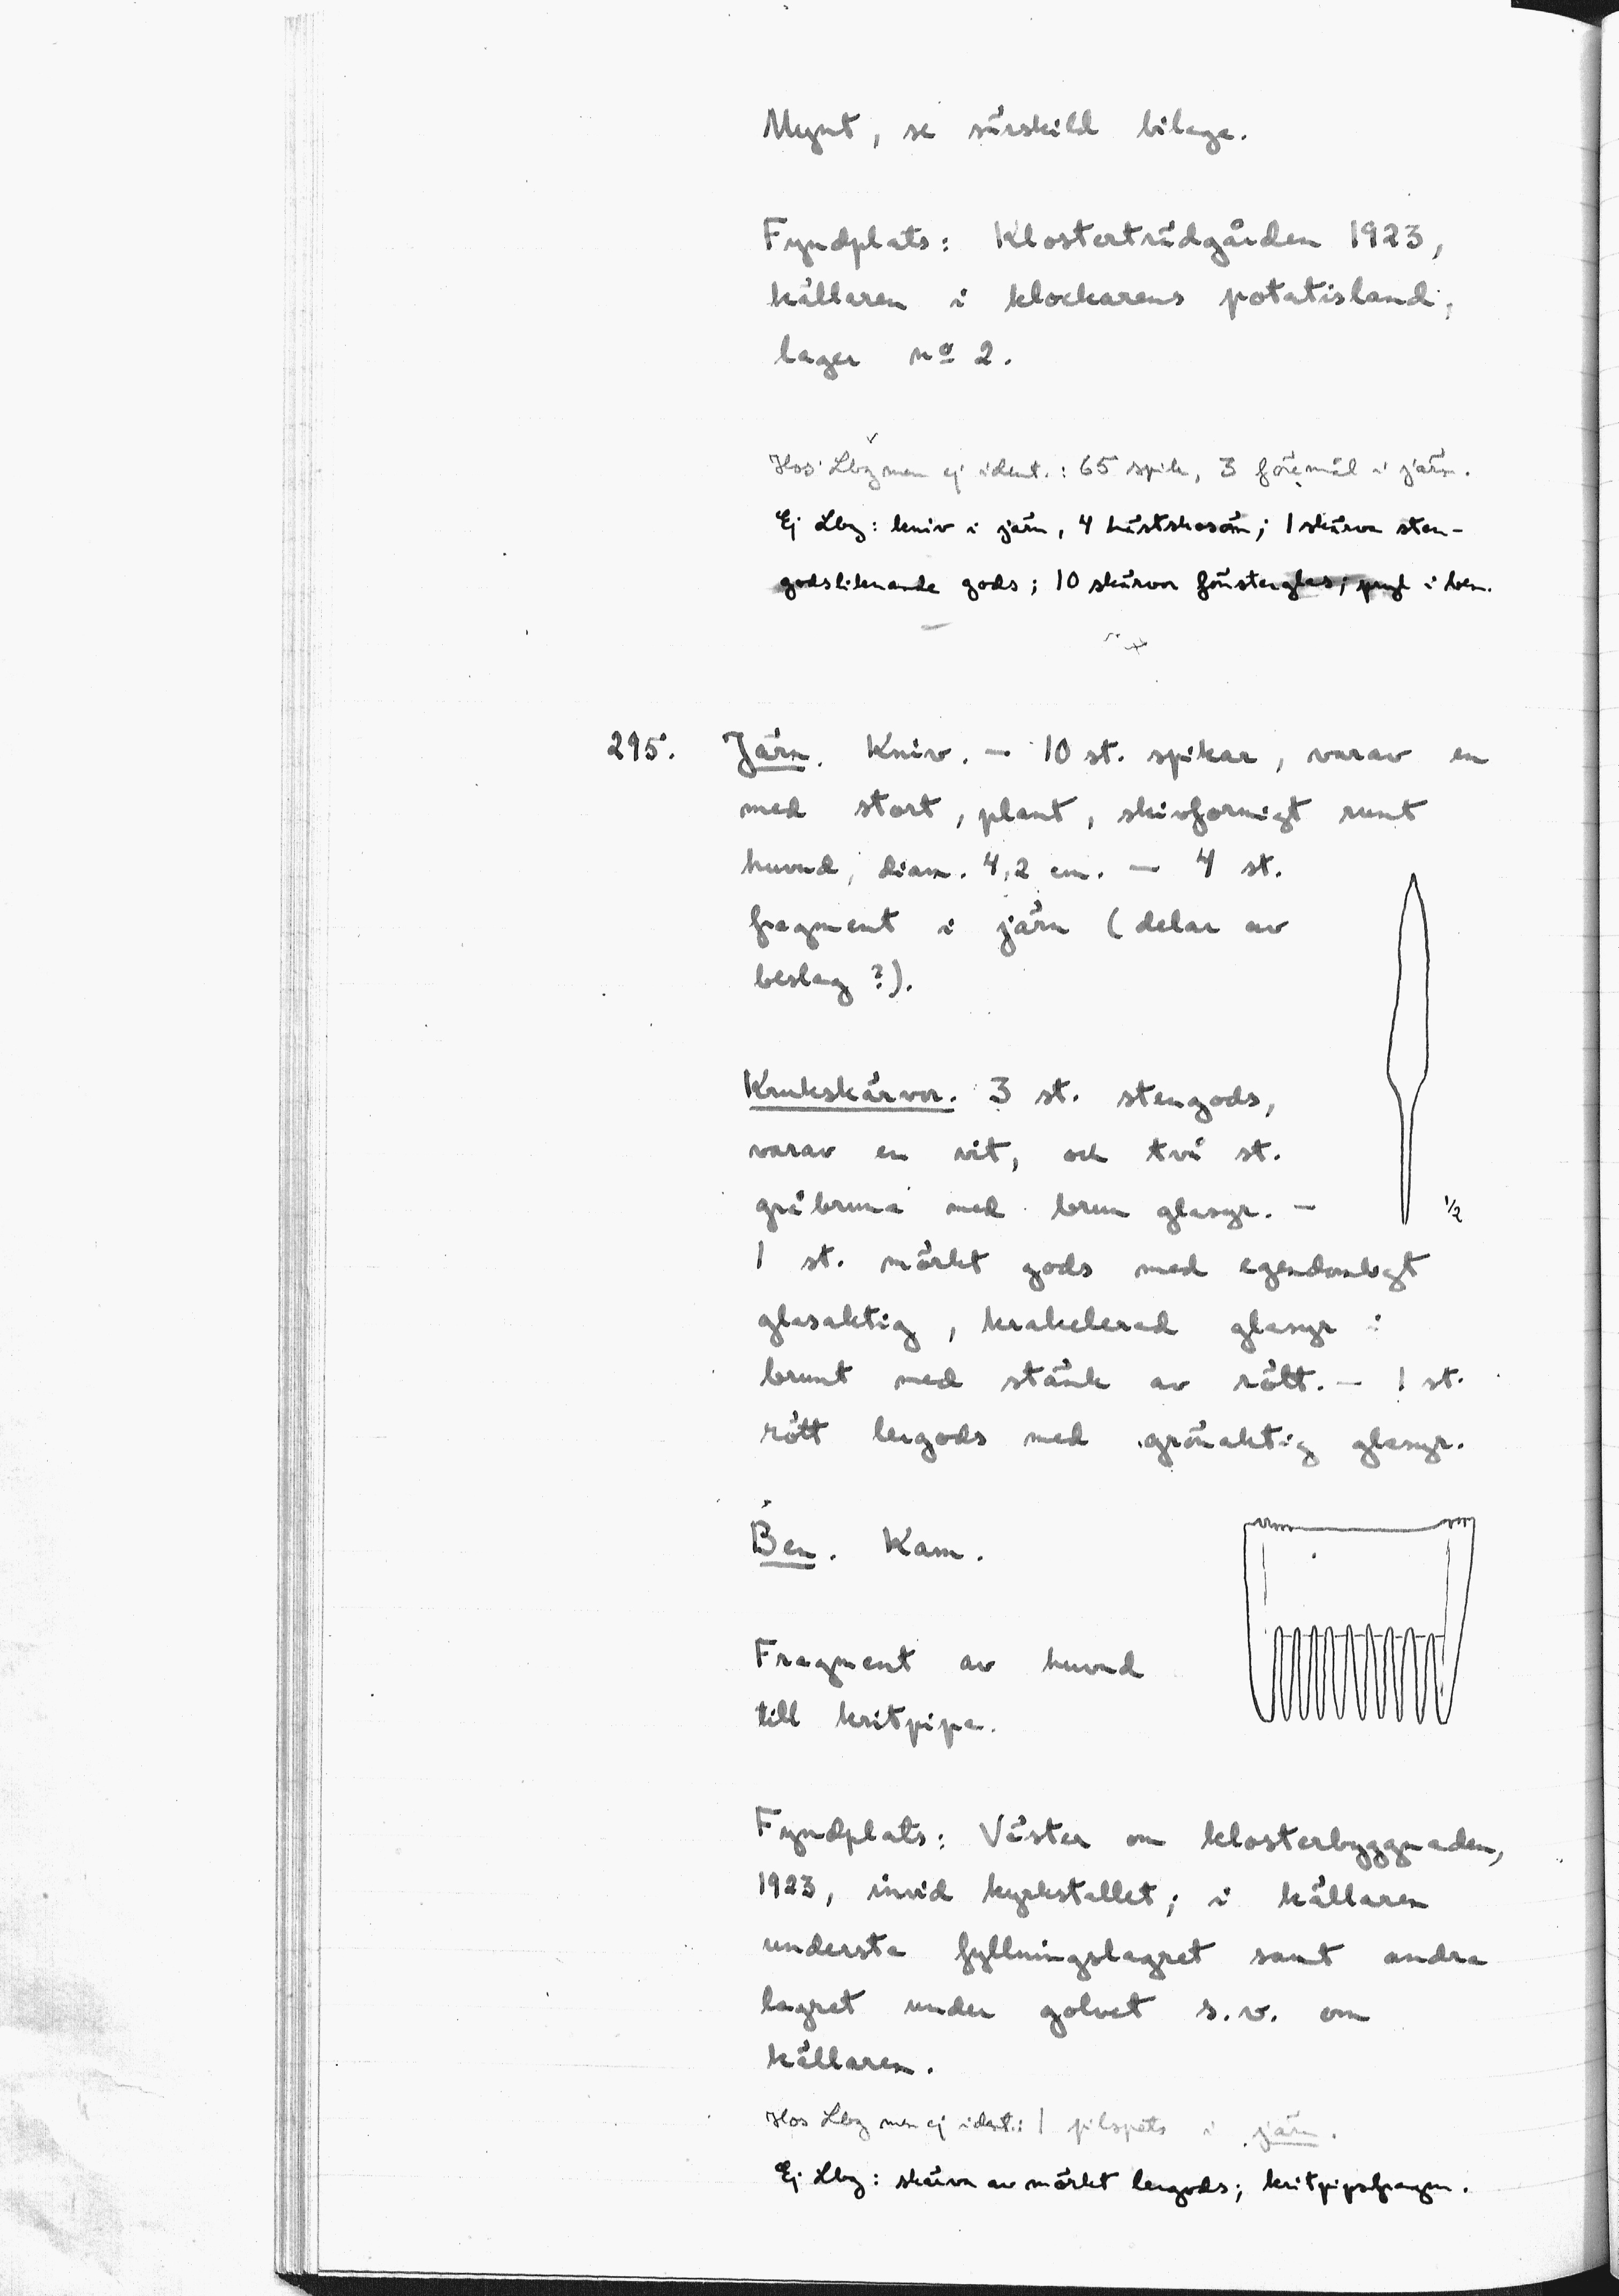 Mynt, se särskild bilaga.
Fyndplats: Klosterträdgården 1923,
källaren i klockarens potatisland,
lager nº 2.
Hos Lbg men ej ident.: 65 spik, 3 föremål i järn.
Ej Lbg: kniv i järn, 4 hästskosöm; 1 skärva sten-
godsliknande gods; 10 skärvor fönsterglas; pryl i ben.
295. Järn. Kniv. — 10 st. spikar, varav en
med stort, plant, skivformigt runt
huvud, diam. 4,2 cm. — 4 st.
fragment i järn (delar av
beslag?).
Krukskärvor. 3 st. stengods,
varav en vit, och två st.
gråbruna med brun glasyr. —
1/2
1 st. mörkt gods med egendomligt
glasaktig, krakelerad glasyr i
brunt med stänk av rött. — 1 st.
rött lergods med grönaktig glasyr.
Ben. Kam.
Fragment av huvud
till kritpipa.
Fyndplats: Väster om klosterbyggnaden,
1923, invid kyrkstallet; i källaren
understa fyllningslagret samt andra
lagret under golvet s.v. om
källaren.
Hos Lbg men ej ident.: 1 pilspets i järn.
Ej Lbg: skärva av mörkt lergods; kritpipsfragm.